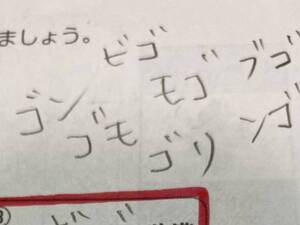 ましょう。
ビゴ
モゴ
ブゴ
ゴン
ゴモ
ゴリ
ンゴ